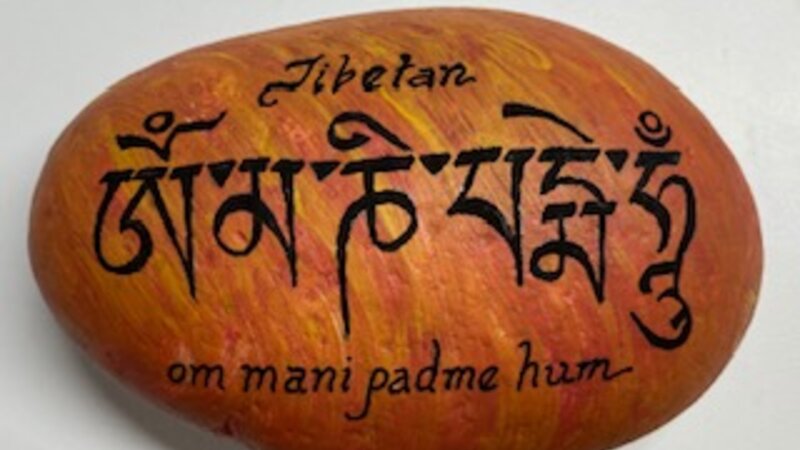 Tibetan
ༀ་མ་ཎི་པདྨེ་ཧཱུྃ
om mani padme hum